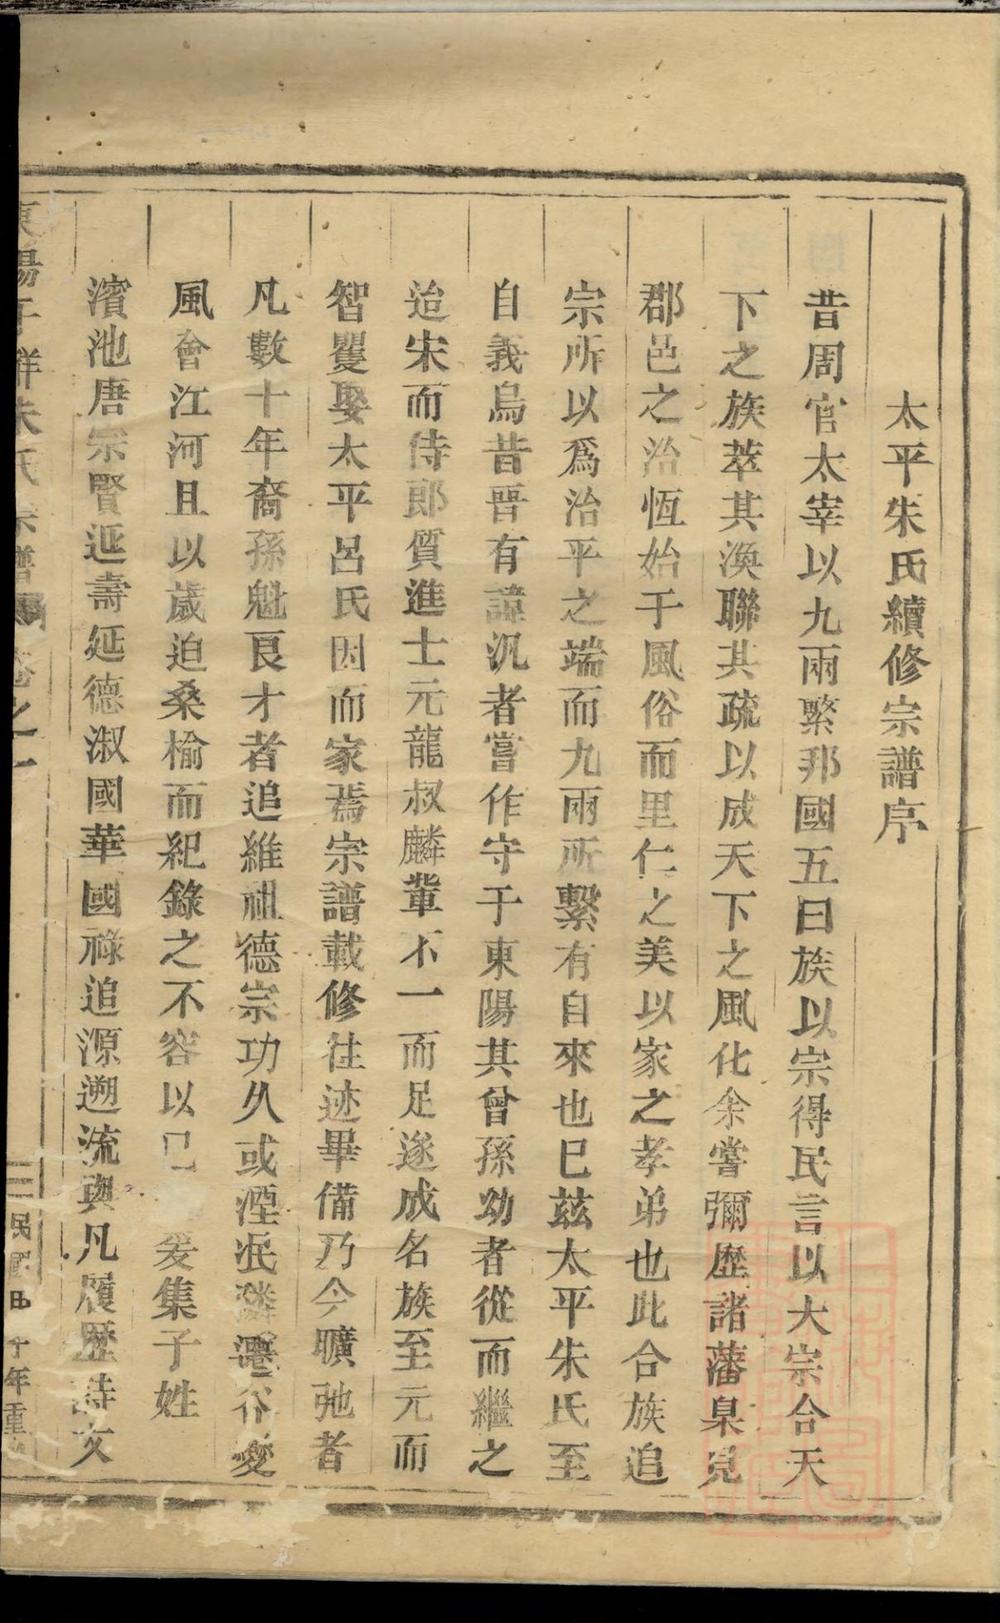 太平朱氏續修宗譜序
昔周官太宰以九兩繫邦國五曰族以宗得民言以大宗合天
下之族萃其渙聯其疏以成天下之風化余嘗彌歷諸藩臬見
郡邑之治恆始于風俗而里仁之美以家之孝弟也此合族追
宗所以爲治平之端而九兩所繫有自來也已茲太平朱氏至
自義烏昔晉有諱汎者嘗作守于東陽其曾孫幼者從而繼之
迨宋而侍郎質進士元龍叔麟輩不一而足遂成名族至元而
智矍娶太平呂氏因而家焉宗譜載修往迹畢備乃今曠弛者
凡數十年裔孫魁艮才者追維祖德宗功久或湮泯潾瀍谷變
風會江河且以歲迫桑榆而紀錄之不容以已爰集子姓
濱池唐宗賢延壽延德淑國華國祿追源遡流與凡履歷詩文
東陽千祥朱氏宗譜 卷之一 民國 年重